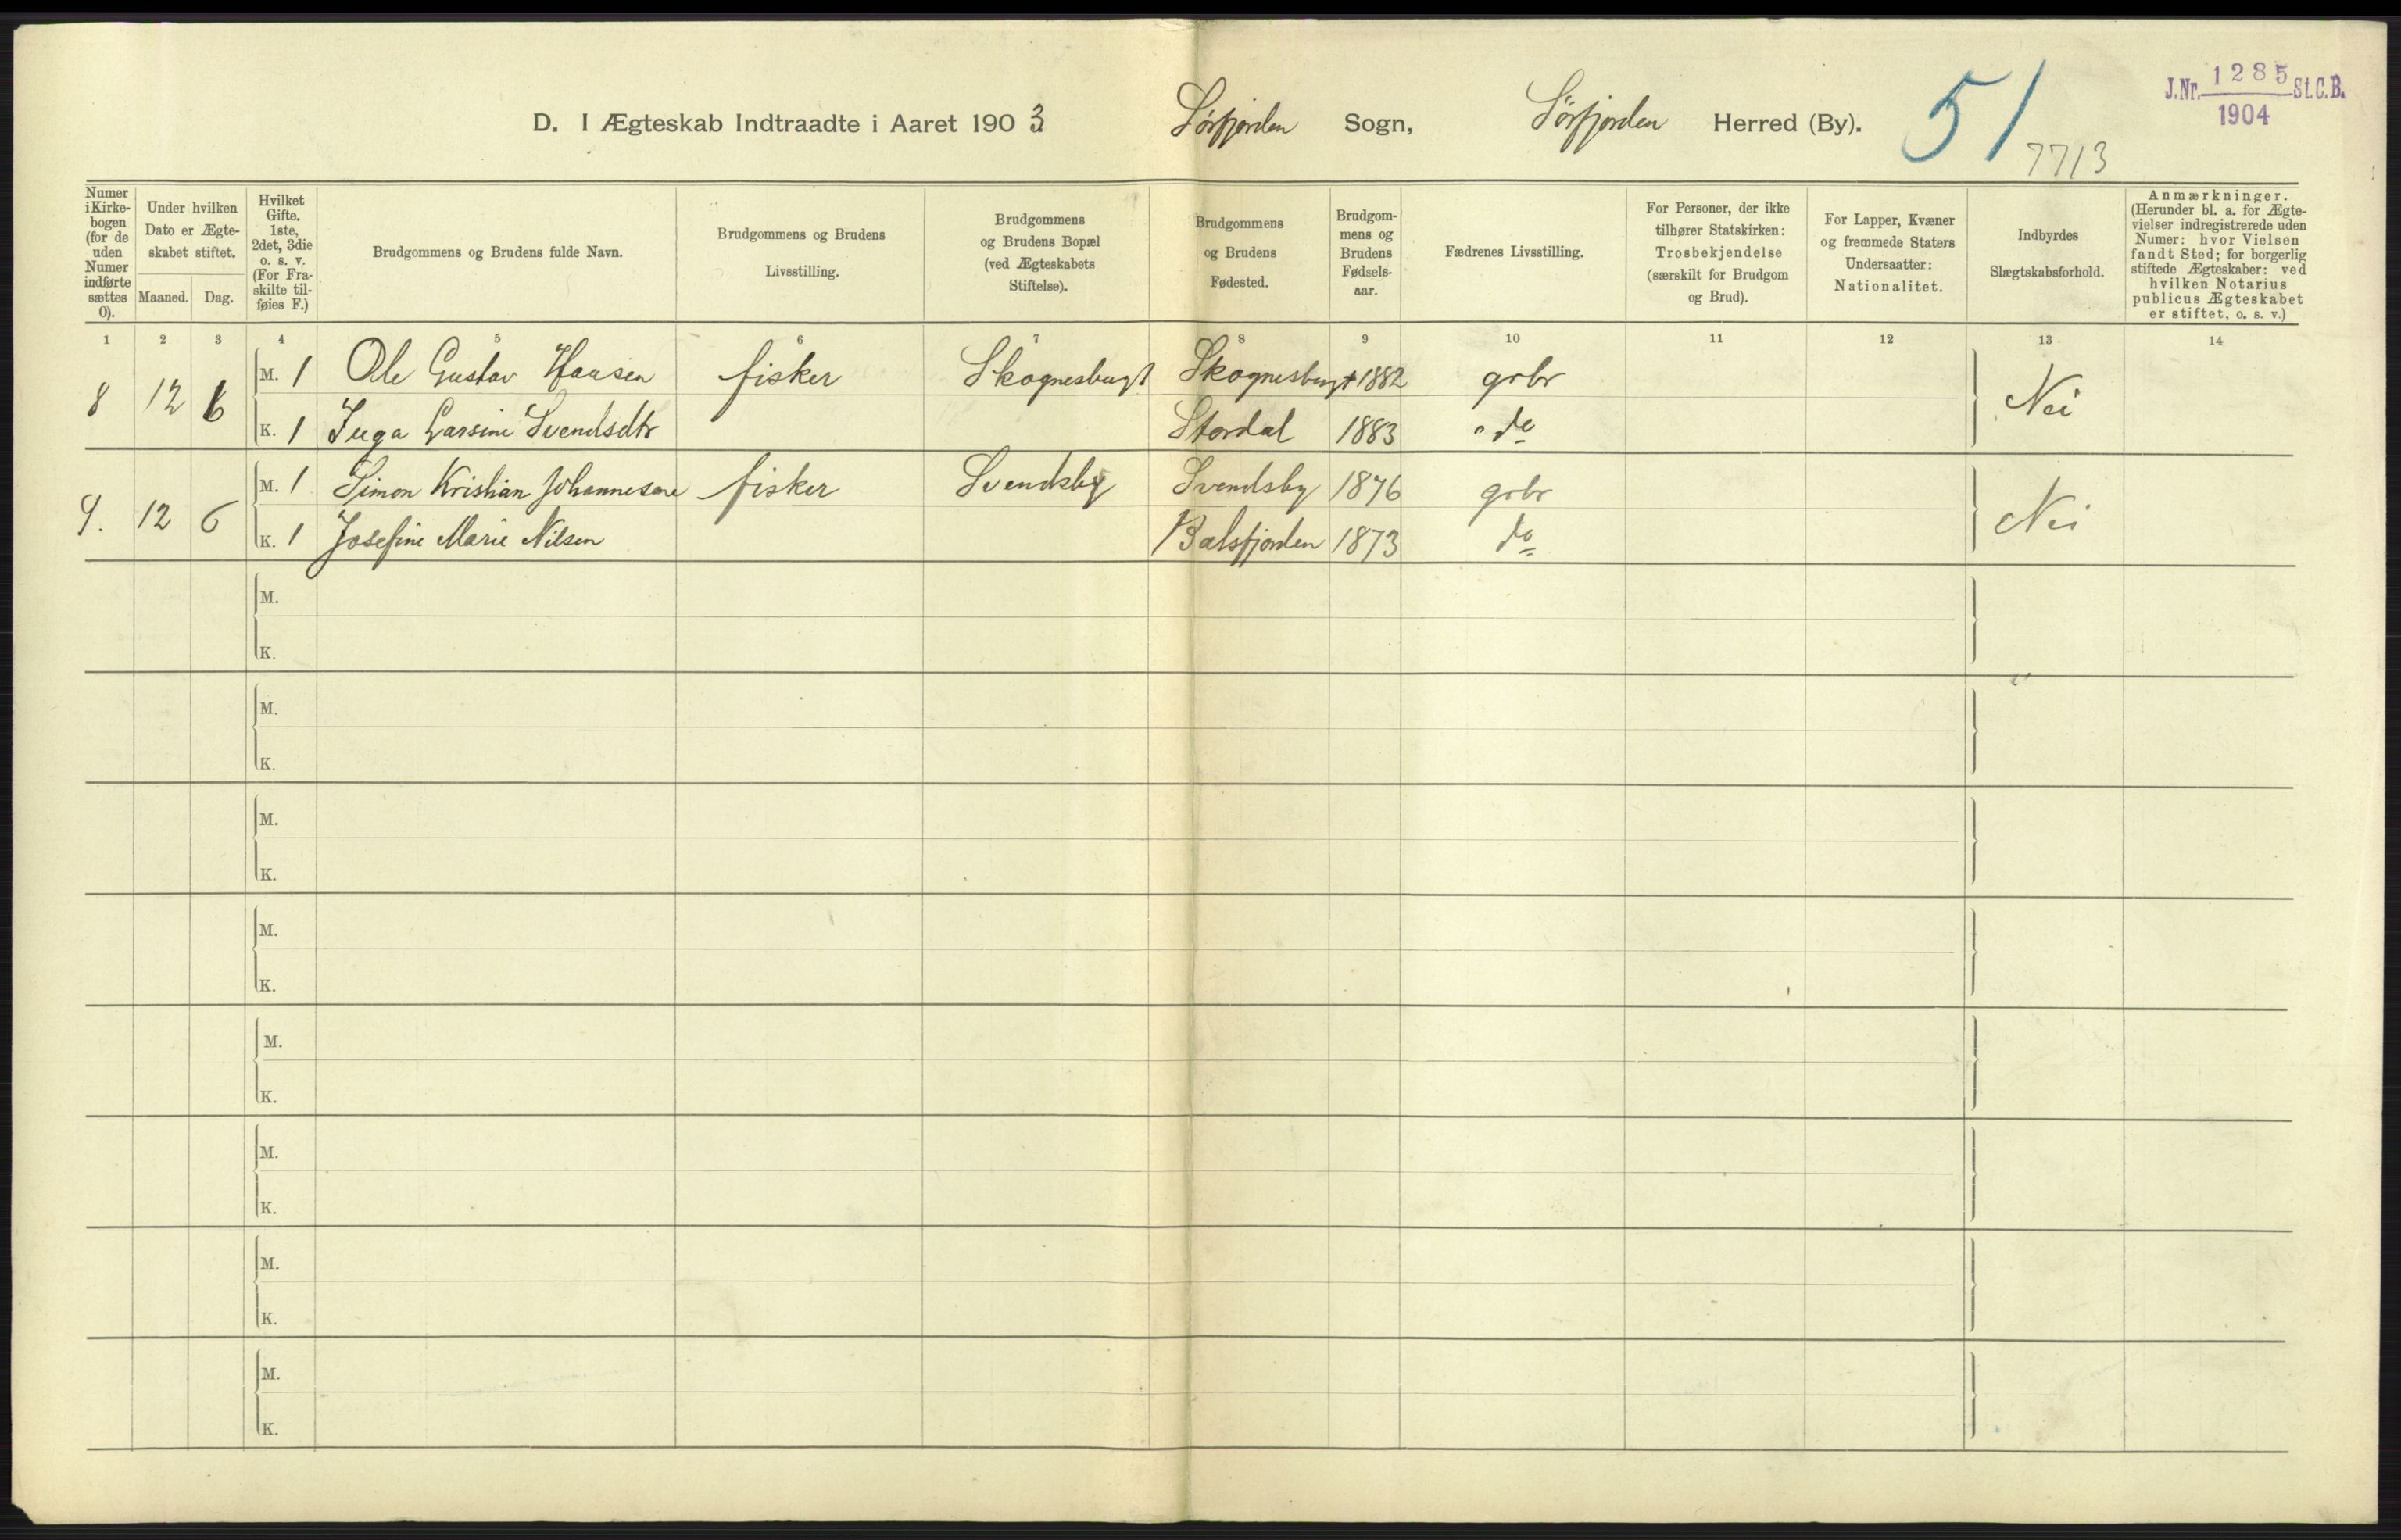 J.Nr. 1285 St.C.B.
1904
D. I Ægteskab Indtraadte i Aaret 1903 Sørfjorden Sogn, Sørfjorden Herred (By). 51
7713
Numer i Kirke-bogen (for de uden Numer indførte sættes 0).
Under hvilken Dato er Ægte-skabet stiftet.
Maaned. Dag.
Hvilket Gifte. 1ste, 2det, 3die o. s. v. (For Fra-skilte til-føies F.)
Brudgommens og Brudens fulde Navn.
Brudgommens og Brudens Livsstilling.
Brudgommens og Brudens Bopæl (ved Ægteskabets Stiftelse).
Brudgommens og Brudens Fødested.
Brudgom-mens og Brudens Fødsels-aar.
Fædrenes Livsstilling.
For Personer, der ikke tilhører Statskirken: Trosbekjendelse (særskilt for Brudgom og Brud).
For Lapper, Kvæner og fremmede Staters Undersaatter: Nationalitet.
Indbyrdes Slægtskabsforhold.
Anmærkninger. (Herunder bl. a. for Ægte-vielser indregistrerede uden Numer: hvor Vielsen fandt Sted; for borgerlig stiftede Ægteskaber: ved hvilken Notarius publicus Ægteskabet er stiftet, o. s. v.)
1 2 3 4 5 6 7 8 9 10 11 12 13 14
8 12 6 M. 1 Ole Gustav Hansen fisker Skognesbugt Skognesbugt 1882 grbr Nei
K. 1 Inga Larsine Svendsdtr Stordal 1883 do
9. 12 6 M. 1 Simon Kristian Johannesen fisker Svendsby Svendsby 1876 grbr Nei
K. 1 Josefine Marie Nilsen Balsfjorden 1873 do
M.
K.
M.
K.
M.
K.
M.
K.
M.
K.
M.
K.
M.
K.
M.
K.